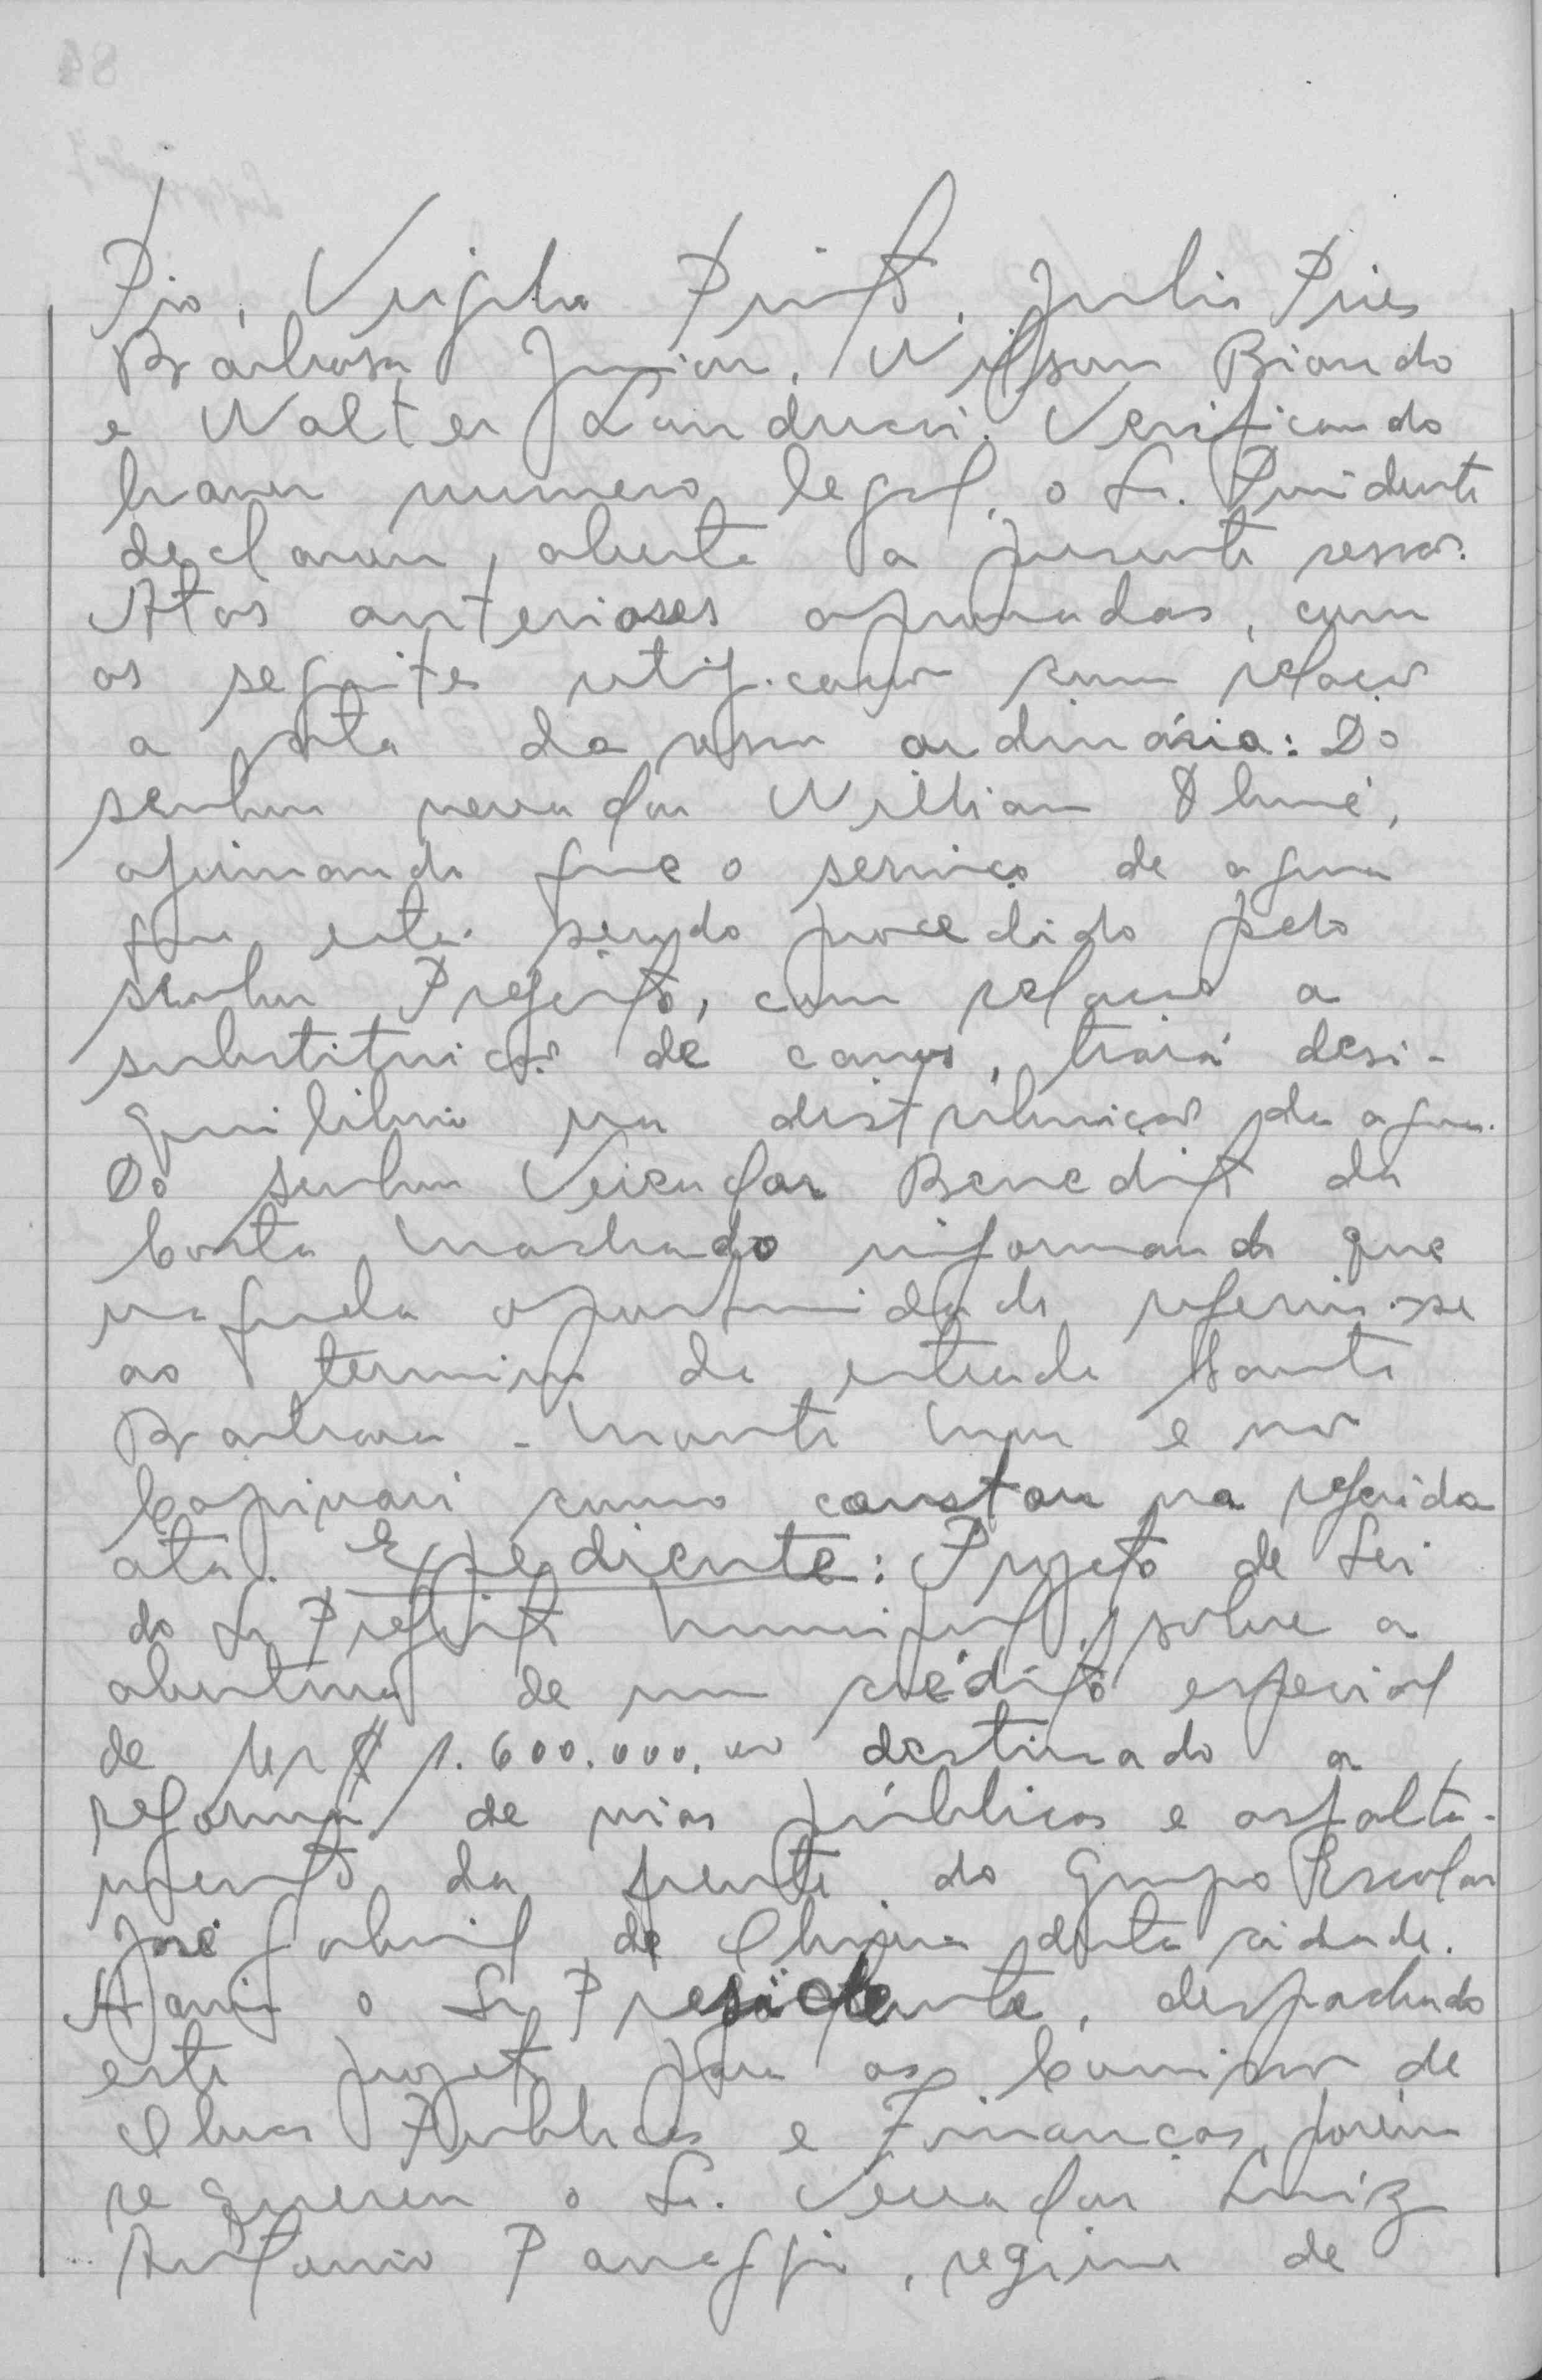 Pio, Virgilio Pinto, Julio Pires
Barbosa Junior, Wilson Biondo
e Walter Landucci. Verificando
haver numero legal, o Sr. Presidente
declarou, aberta a presente sessão.
Atas anteriores aprovadas, com
as seguintes retificações com relação
a ata da sessão ordinária: Do
senhor vereador Willian
afirmando que o serviço de agua
que esta sendo procedido pelo
senhor Prefeito, com relação a
substituição de canos, trará desi-
quilibrio na distribuição da agua.
Do senhor Vereador Benedito da
Costa Machado informando que
naquela oportunidade referiu-se
ao termino da estrada Santa
Barbara - Monte Mor e não
Capivari como constou na referida
ata. Expediente: Projeto de Lei
do Sr Prefeito Municipal, sobre a
abertura de um crédito especial
de Cr$ 1.600.000,00 destinado a
reforma de vias públicas e asfalta-
mento da frente do Grupo Escolar
José Gabriel de Oliveira desta cidade.
Havia o Sr Presidente, despachado
este projeto para as Comissões de
Obras Publicas e Finanças, porém
requereu o Sr. Vereador Luiz
Antonio Panaggio, regime de